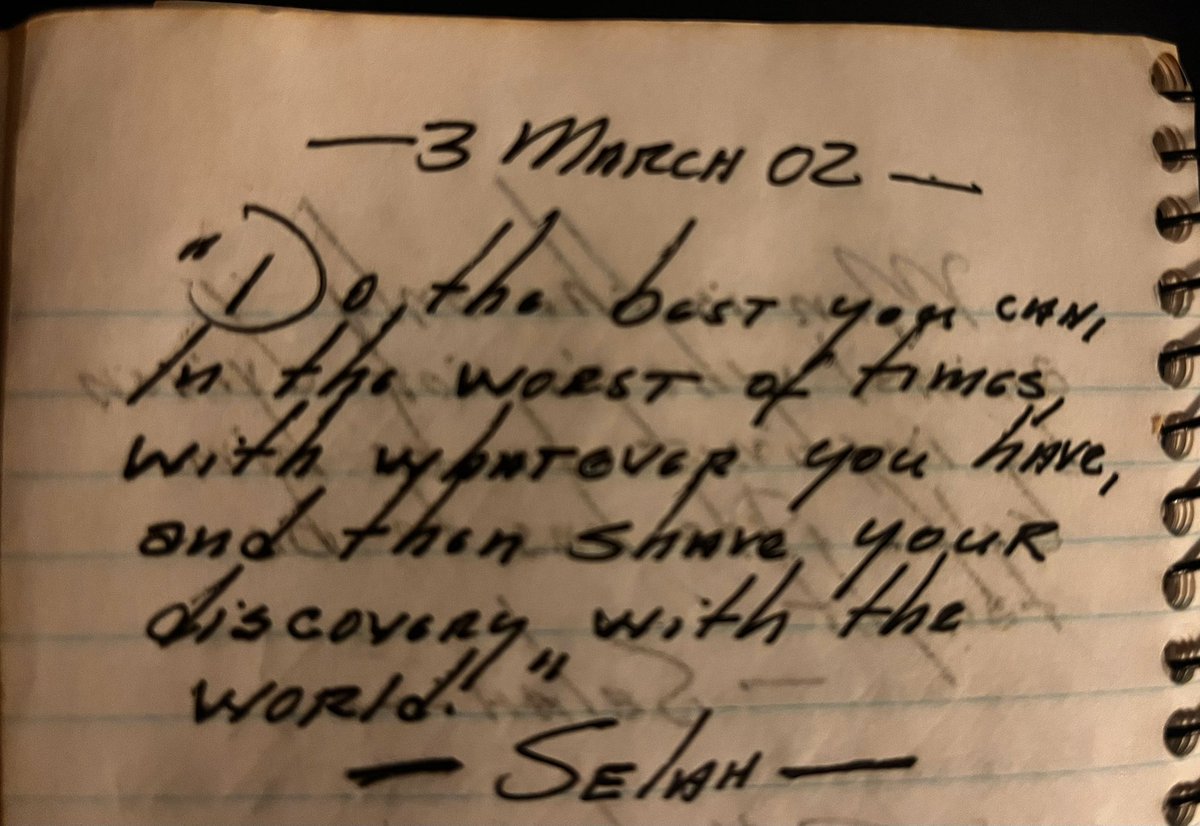 — 3 MARCH 02 —
"Do the best you can,
In the worst of times
with whatever you have,
and then share your
discovery with the
world!"
— Selah —